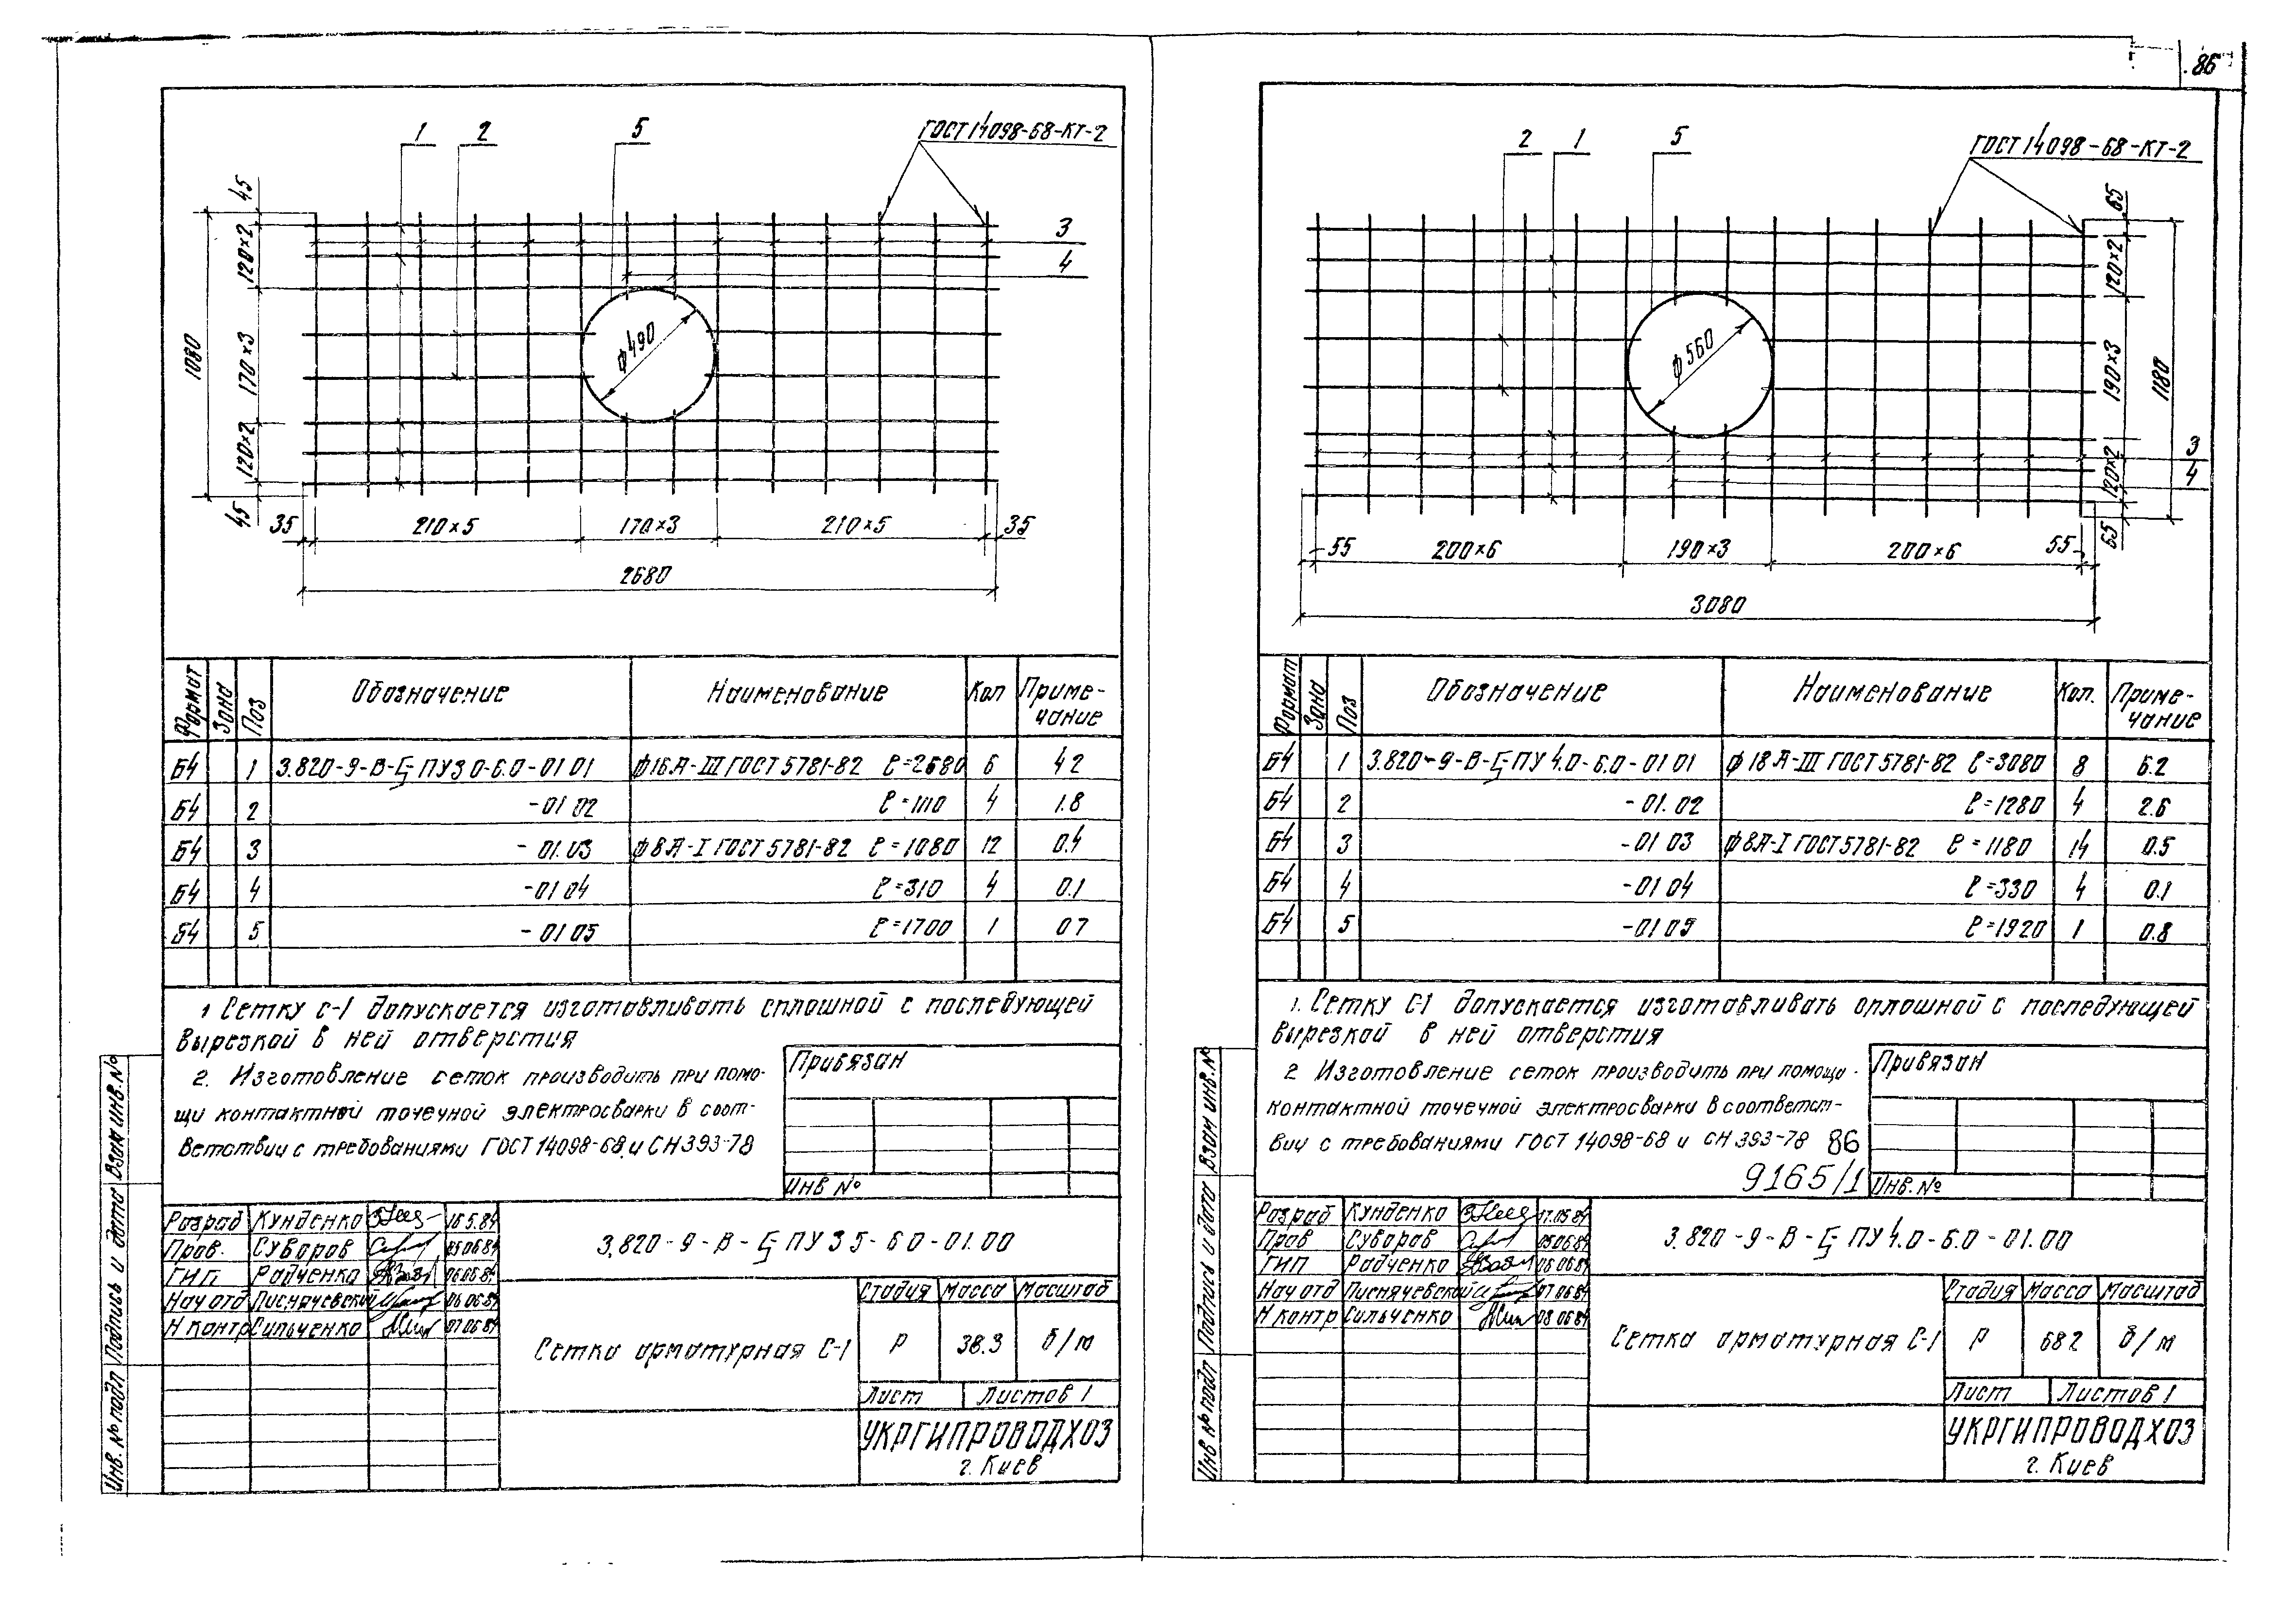 86
1 2 5 ГОСТ 14098-68-КТ-2
45
120×2
170×3
120×2
45
1080
3
4
ф490
35 210×5 170×3 210×5 35
2680
Формат Зона Поз Обозначение Наименование Кол Приме-
чание
Б4 1 3.820-9-В-Б ПУ3 0-6.0-01 01 ф16А-III ГОСТ 5781-82 ℓ=2680 6 4 2
Б4 2 -01 02 ℓ=1110 4 1.8
Б4 3 -01.03 ф8А-I ГОСТ 5781-82 ℓ=1080 12 0.4
Б4 4 -01 04 ℓ=310 4 0.1
Б4 5 -01 05 ℓ=1700 1 0 7
1 Сетку С-1 допускается изготавливать сплошной с последующей
вырезкой в ней отверстия
2. Изготовление сеток производить при помо-
щи контактной точечной электросварки в соот-
ветствии с требованиями ГОСТ 14098-68 и СН 393-78
Привязан
Инв №
Разраб Кунденко 16 5.84
Пров. Суворов 05 06 84
ГИП Радченко 06 06 84
Нач отд Писнячевский 06 06 84
Н контр Сильченко 07 06 84
3.820-9-В-Б ПУ 3 5-6 0-01.00
Сетка арматурная С-1
Стадия Масса Масштаб
Р 38.3 б/м
Лист Листов 1
УКРГИПРОВОДХОЗ
г. Киев
Инв. № подл Подпись и дата Взам инв. №
2 1 5 ГОСТ 14098-68-КТ-2
65
120×2
190×3
120×2
65
1180
3
4
ф560
55 200×6 190×3 200×6 55
3080
Формат Зона Поз Обозначение Наименование Кол. Приме-
чание
Б4 1 3.820-9-В-Б ПУ 4.0-6.0-01 01 ф18А-III ГОСТ 5781-82 ℓ=3080 8 6.2
Б4 2 -01.02 ℓ=1280 4 2.6
Б4 3 -01 03 ф8А-I ГОСТ 5781-82 ℓ=1180 14 0.5
Б4 4 -01 04 ℓ=330 4 0.1
Б4 5 -01 05 ℓ=1920 1 0.8
1. Сетку С1 допускается изготавливать сплошной с последующей
вырезкой в ней отверстия
2 Изготовление сеток производить при помощи
контактной точечной электросварки в соответст-
вии с требованиями ГОСТ 14098-68 и СН 393-78 86
9165/1
Привязан
Инв. №
Разраб Кунденко 17.05 84
Пров Суворов 05 06 84
ГИП Радченко 06 06 84
Нач отд Писнячевский 07 06 84
Н контр Сильченко 08 06 84
3.820-9-В-Б ПУ 4.0-6.0-01.00
Сетка арматурная С-1
Стадия Масса Масштаб
Р 68 2 б/м
Лист Листов 1
УКРГИПРОВОДХОЗ
г. Киев
Инв № подл Подпись и дата Взам инв. №